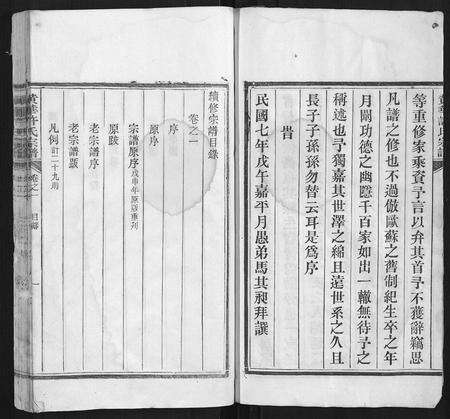 等重修家乘資予言以弁其首予不獲辭竊思
凡譜之修也不過倣歐蘇之舊制紀生卒之年
月闡功德之幽隱千百家如出一轍無待予之
稱述也予獨嘉其世澤之綿且遠世系之久且
長子子孫孫勿替云耳是爲序
旹
民國七年戊午嘉平月愚弟馬其昶拜譔
續修宗譜目錄
卷之一
序
原序
宗譜原序 戊申年原版重列
原跋
老宗譜序
老宗譜題
凡例 訂二十九則
黃華許氏宗譜 卷之一 目錄 一